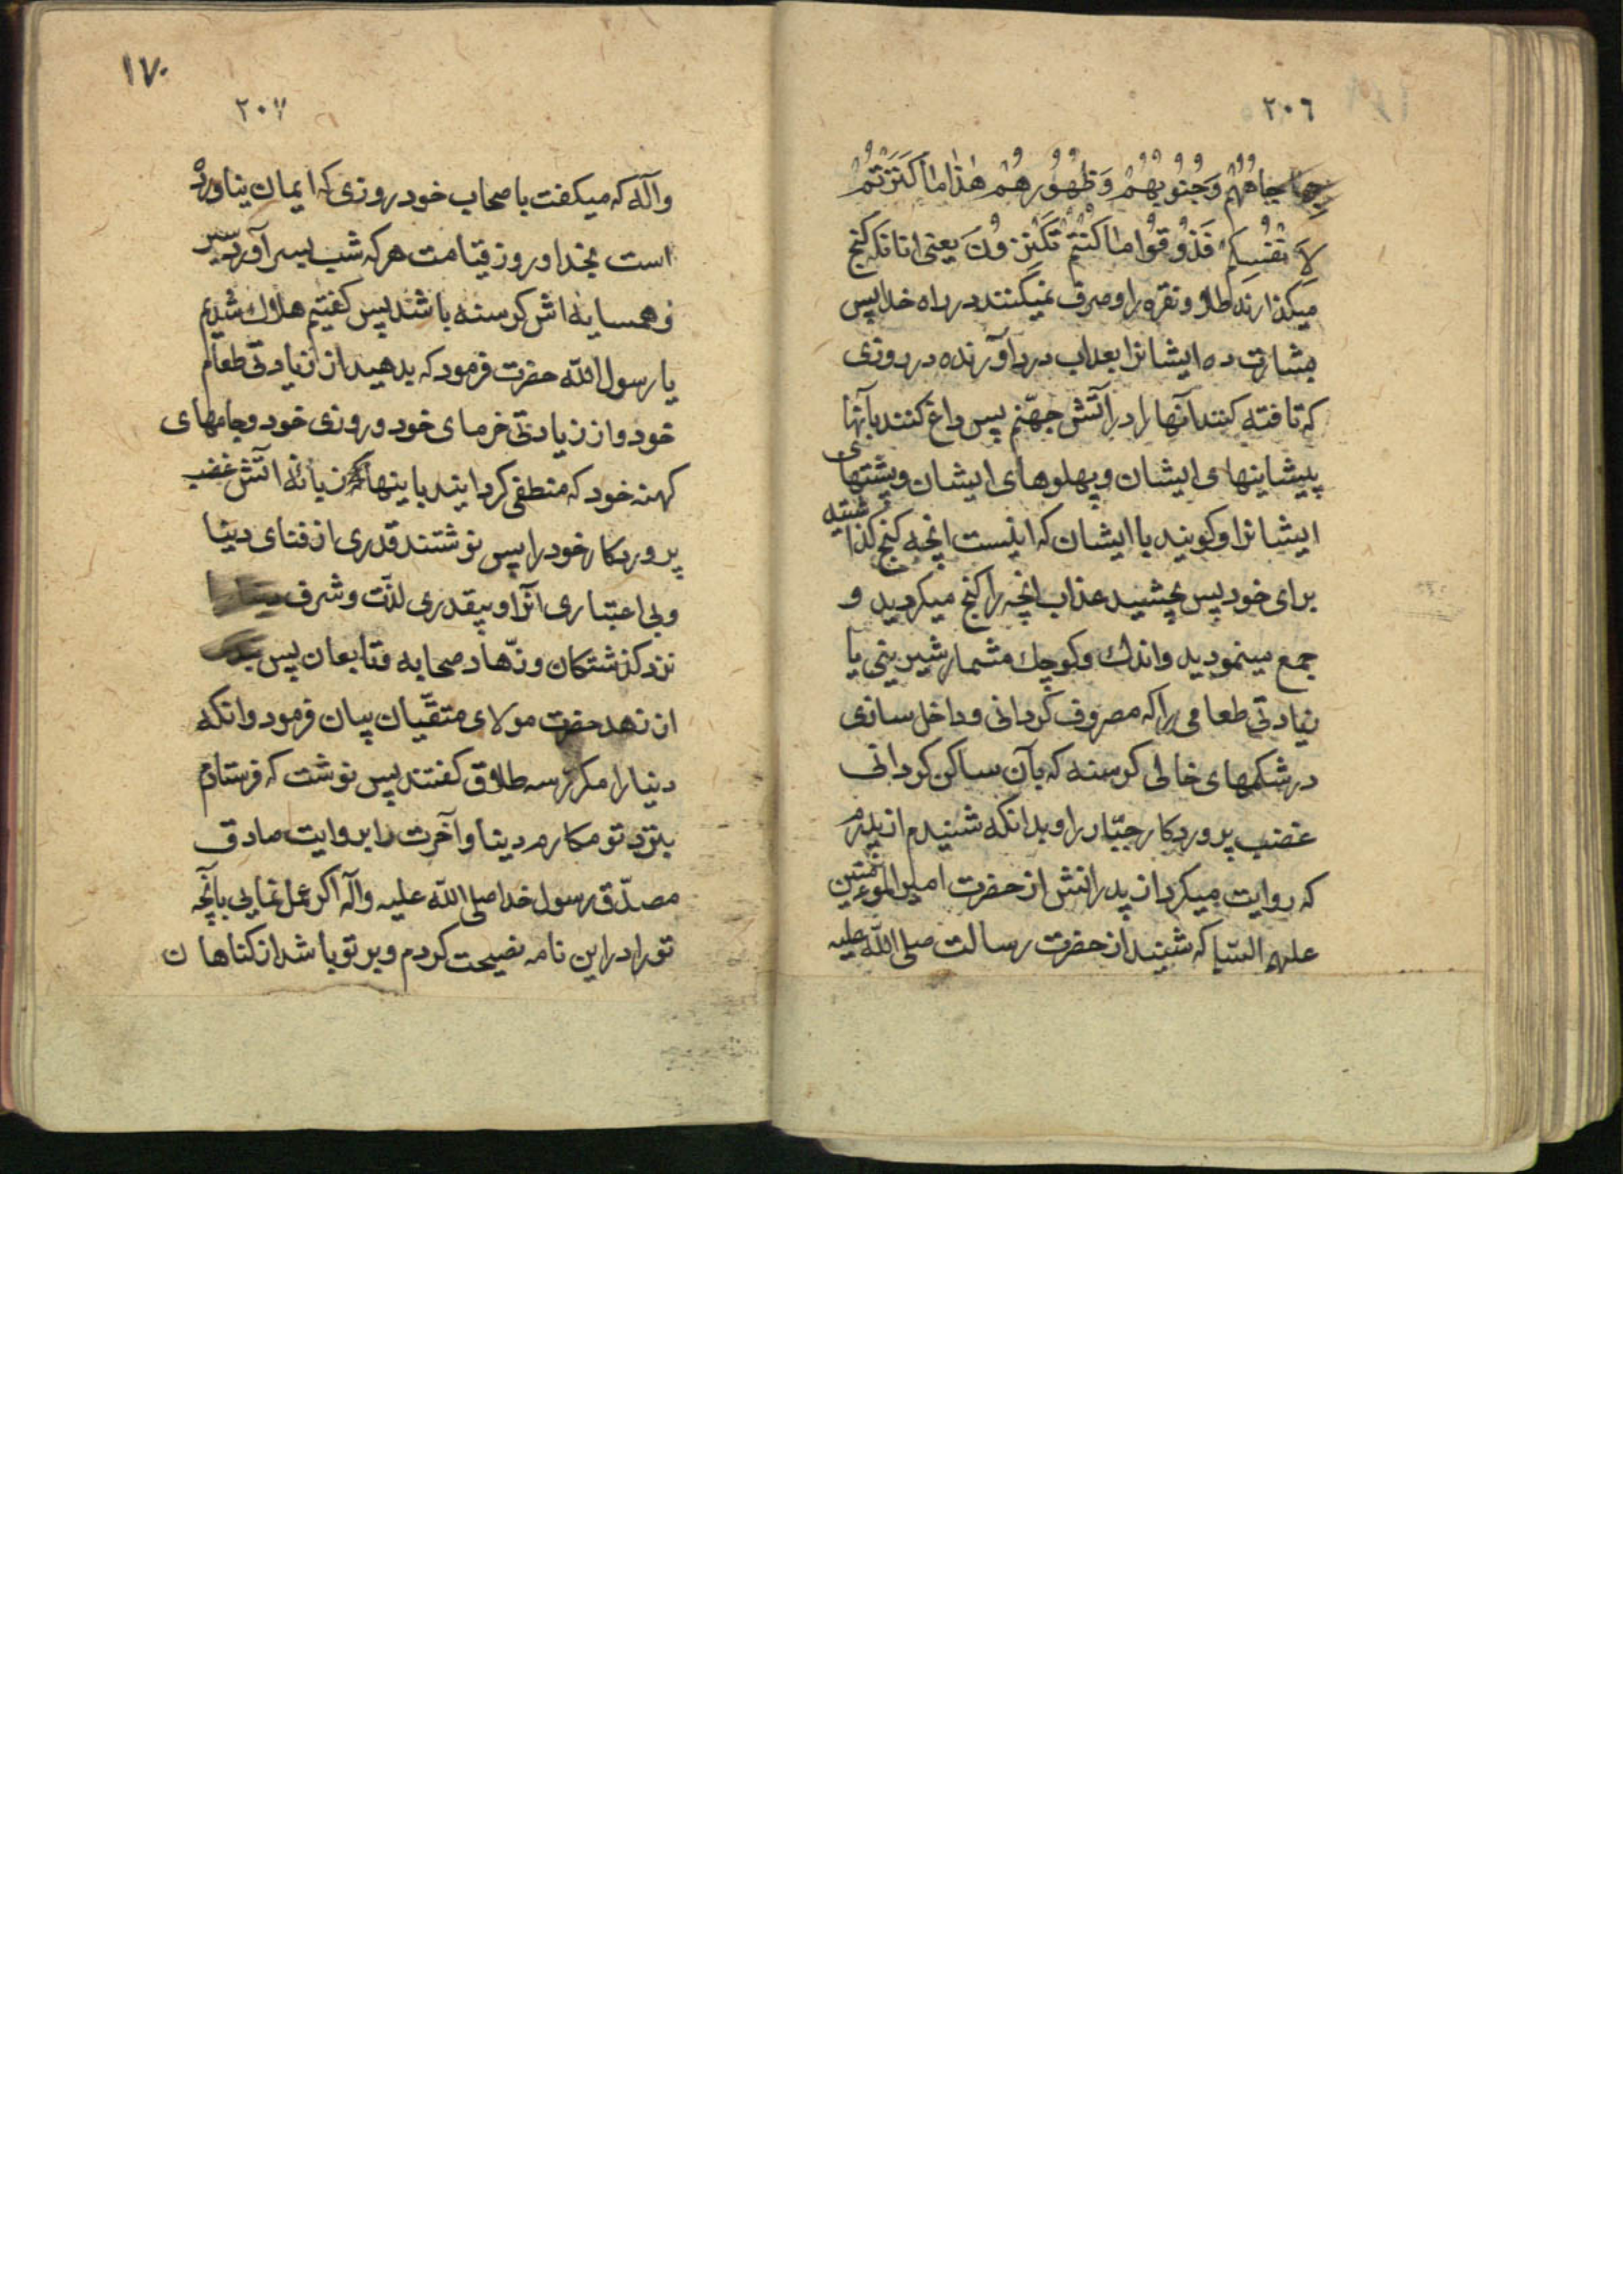 ٢٠٦
بها جباههم وَجُنُوبُهُمْ وَظُهُورُهُمْ هٰذا ما كَنَزْتُمْ
لِاَنْفُسِكُمْ فَذُوقُوا ما كُنْتُمْ تَكْنِزُونَ یعنی انانکه کنج
میکذارند طلا و نقره را و صرف نمیکنند در راه خدا پس
بشارت ده ایشانرا بعذاب درد آورنده در روزی
که تافته کنند آنها را در آتش جهنّم پس داغ کنند بآنها
پیشانیهای ایشان و پهلوهای ایشان و پشتهای
ایشانرا و کویند با ایشان که اینست انچه کنج کذاشته
برای خود پس بچشید عذاب انچه را کنج میکردید و
جمع مینمودید و اندك و کوچك مشمار شیرینی یا
زیادتی طعامی را که مصروف کردانی و داخل سازی
در شکمهای خالی کرسنه که بآن ساکن کردانی
غضب پروردکار جبّار را و بدانکه شنیدم از پدرم
که روایت میکرد از پدرانش از حضرت امیرالمؤمنین
علیهم السّلم که شنید از حضرت رسالت صلی اللّه علیه
١٧٠
٢٠٧
وآله که میکفت با صحاب خود روزی که ایمان نیاورده
است بخدا و روز قیامت هر که شب بسر آورد سیر
و همسایه اش کرسنه باشد پس کفتیم هلاك شدیم
یا رسول اللّه حضرت فرمود که بدهید از زیادتی طعام
خود و از زیادتی خرمای خود و روزی خود و جامهای
کهنه خود که منطفی کردانید باینها زبانهٔ آتش غضب
پروردکار خود را پس نوشتند قدری از فنای دینا
و بی اعتباری آنرا و بیقدری لذّت و شرف
نزد کذشتکان و زهّاد صحابه و تابعان پس
از زهد حضرت مولای متقّیان بیان فرمود و انکه
دنیا را مکرّر سه طلاق کفتند پس نوشت که فرستادم
بنزد تو مکارم دینا و آخرت را بروایت صادق
مصدّق رسول خدا صلی اللّه علیه وآله اکر عمل نمایی بآنچه
تو را در این نامه نصیحت کردم و بر تو باشد از کناهان